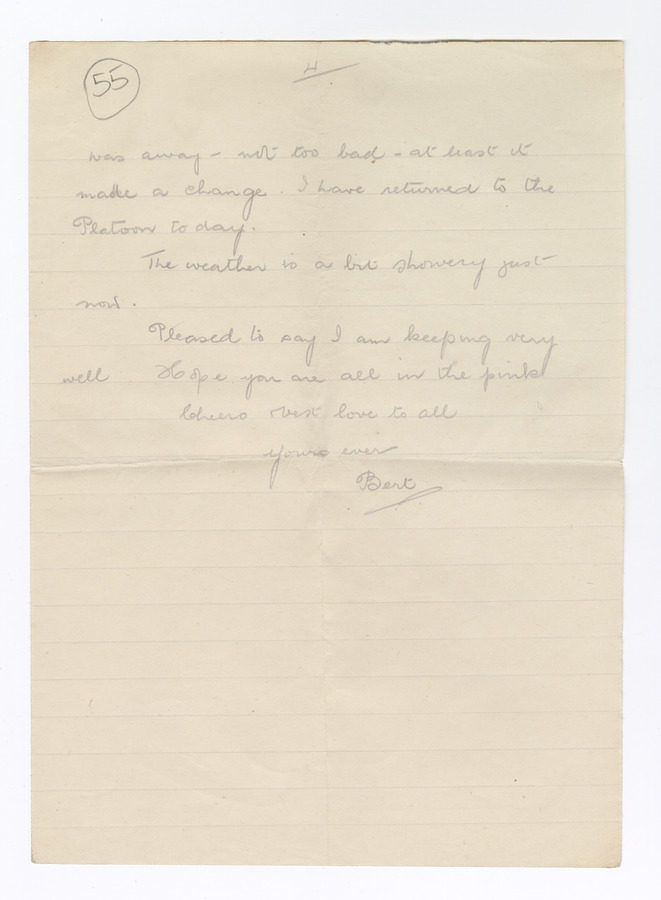 55
4
was away - not too bad - at least it
made a change. I have returned to the
Platoon to day.
The weather is a bit showery just
now.
Pleased to say I am keeping very
well. Hope you are all in the pink
Cheero best love to all
Yours ever
Bert